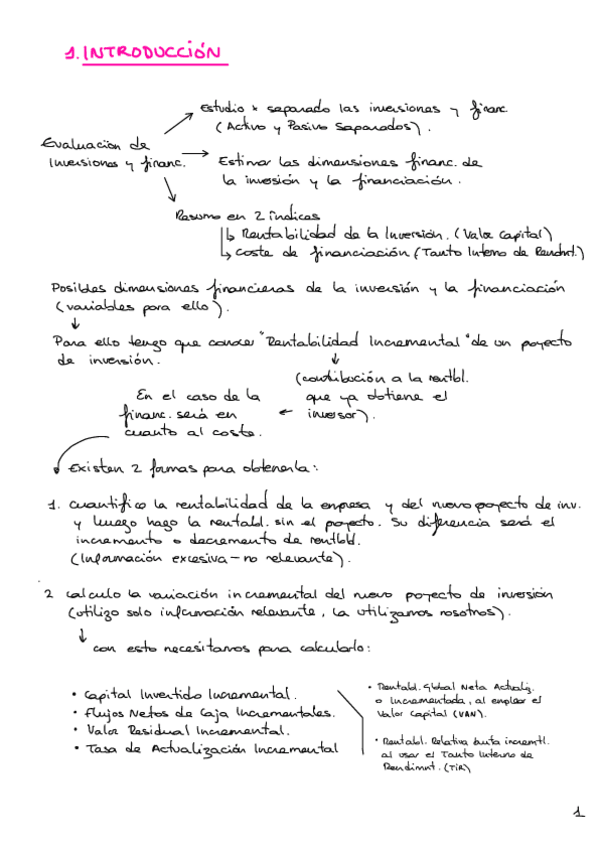 1. INTRODUCCIÓN
Estudio x separado las inversiones y financ.
(Activo y Pasivo Separados).
Evaluación de
Inversiones y financ.
Estimar las dimensiones financ. de
la inversión y la financiación.
Resumo en 2 índices
Rentabilidad de la Inversión. (Valor Capital)
Coste de financiación (Tanto Interno de Rendmt.)
Posibles dimensiones financieras de la inversión y la financiación
(variables para ello).
Para ello tengo que conocer "Rentabilidad Incremental" de un proyecto
de inversión.
(contribución a la rentbl.
que ya obtiene el
inversor).
En el caso de la
financ. será en
cuanto al coste.
Existen 2 formas para obtenerla:
1. Cuantifico la rentabilidad de la empresa y del nuevo proyecto de inv.
y luego hago la rentabl. sin el proyecto. Su diferencia será el
incremento o decremento de rentbld.
(Información excesiva - no relevante).
2 Calculo la variación incremental del nuevo proyecto de inversión
(utilizo solo información relevante, la utilizamos nosotros).
con esto necesitamos para calcularlo:
• Capital Invertido Incremental.
• Flujos Netos de Caja Incrementales.
• Valor Residual Incremental.
• Tasa de Actualización Incremental
• Rentabl. Global Neta Actualiz.
o Incrementada, al emplear el
Valor Capital (VAN).
• Rentabl. Relativa bruta incremtl.
al usar el Tanto Interno de
Rendimnt. (TIR)
1